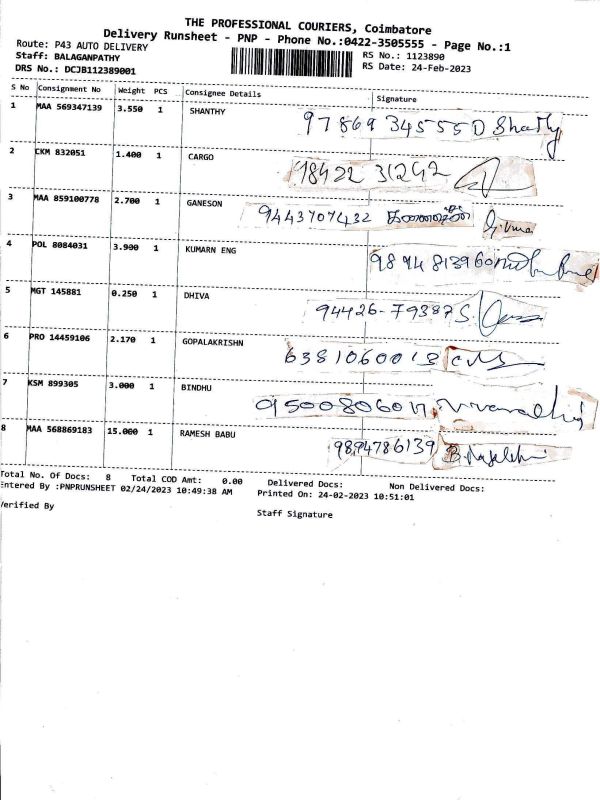 THE PROFESSIONAL COURIERS, Coimbatore
Delivery Runsheet - PNP - Phone No.:0422-3505555 - Page No.:1
Route: P43 AUTO DELIVERY
Staff: BALAGANPATHY
DRS No.: DCJB112389001
RS No.: 1123890
RS Date: 24-Feb-2023
S No Consignment No Weight PCS Consignee Details Signature
1 MAA 569347139 3.550 1 SHANTHY 97869 34555 D Shanthy
2 CKM 832051 1.400 1 CARGO 98422 31242
3 MAA 859100778 2.700 1 GANESON 9443707432
4 POL 8084031 3.900 1 KUMARN ENG 9894813960
5 MGT 145881 0.250 1 DHIVA 94426-79387 S.
6 PRO 14459106 2.170 1 GOPALAKRISHN 6381060018
7 KSM 899305 3.000 1 BINDHU 9500806017
8 MAA 568869183 15.000 1 RAMESH BABU 9894786139
Total No. Of Docs: 8 Total COD Amt: 0.00 Delivered Docs: Non Delivered Docs:
Entered By :PNPRUNSHEET 02/24/2023 10:49:38 AM Printed On: 24-02-2023 10:51:01
Verified By
Staff Signature